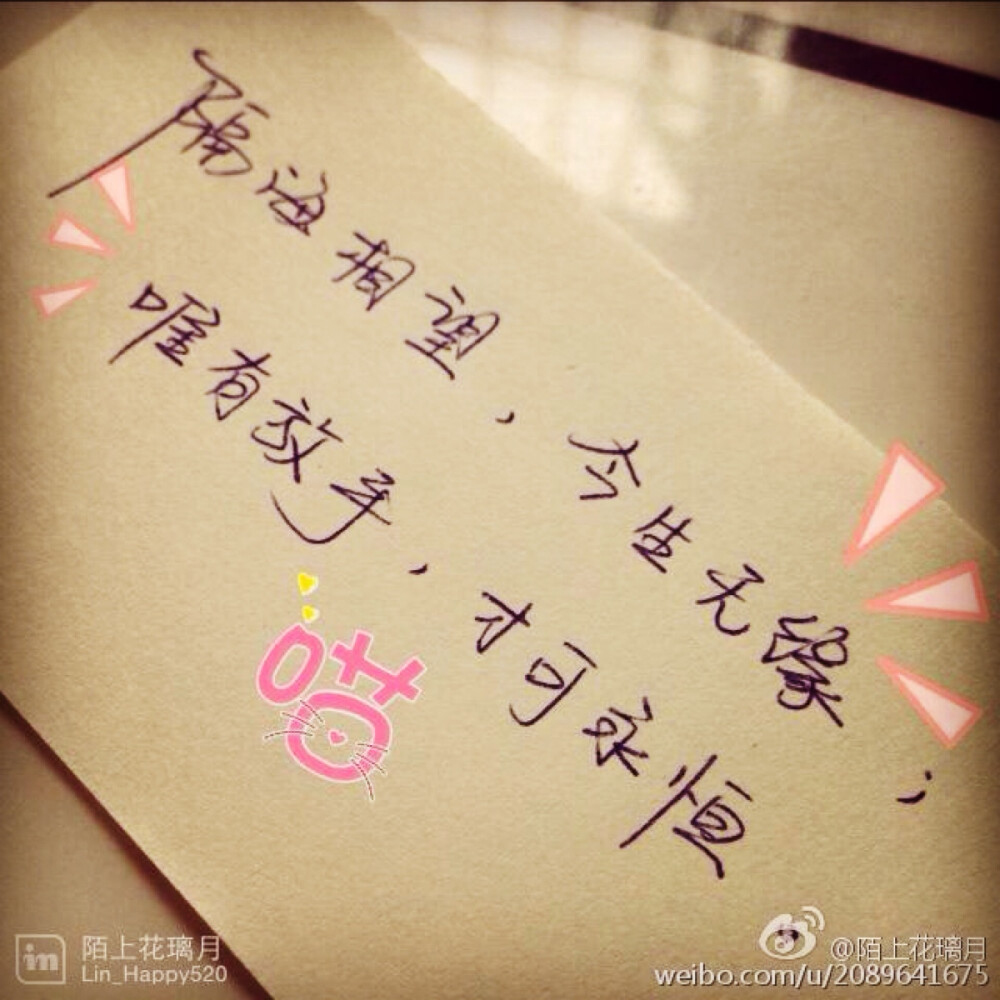 隔海相望，今生无缘；
唯有放手，才可永恒
喵
陌上花璃月
Lin_Happy520
@陌上花璃月
weibo.com/u/2089641675